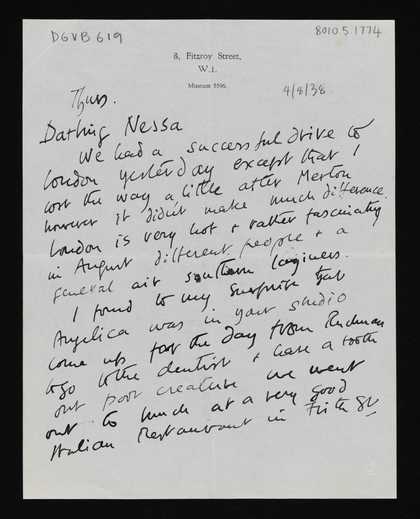 DGVB 619
8010 5 1774
8, Fitzroy Street,
W.1.
Museum 5596.
Thurs.
4/8/38
Darling Nessa
We had a successful drive to
London yesterday except that I
lost the way a little after Merton
however it didn't make much difference.
London is very hot & rather fascinating
in August different people & a
general air Southern laziness.
I found to my surprise that
Angelica was in your studio
come up for the day from Rodmell
to go to the dentist & have a tooth
out poor creature we went
out to lunch at a very good
Italian Restaurant in Frith St